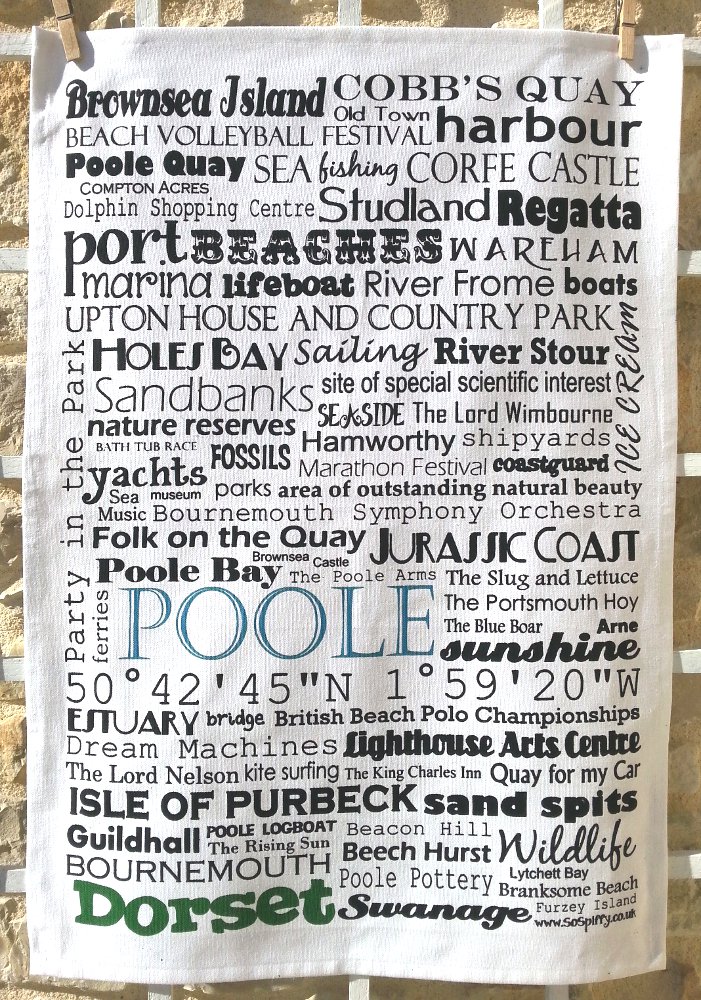 Brownsea Island COBB'S QUAY
Old Town
BEACH VOLLEYBALL FESTIVAL harbour
Poole Quay SEA fishing CORFE CASTLE
COMPTON ACRES
Dolphin Shopping Centre Studland Regatta
port BEACHES WAREHAM
marina lifeboat River Frome boats
UPTON HOUSE AND COUNTRY PARK
ICE CREAM
Party in the Park
HOLES BAY Sailing River Stour
Sandbanks site of special scientific interest
nature reserves SEASIDE The Lord Wimbourne
BATH TUB RACE FOSSILS Hamworthy shipyards
yachts Marathon Festival coastguard
Sea museum parks area of outstanding natural beauty
Music Bournemouth Symphony Orchestra
Folk on the Quay JURASSIC COAST
Brownsea Castle
Poole Bay The Poole Arms The Slug and Lettuce
ferries
POOLE The Portsmouth Hoy
The Blue Boar Arne
sunshine
50°42'45"N 1°59'20"W
ESTUARY bridge British Beach Polo Championships
Dream Machines Lighthouse Arts Centre
The Lord Nelson kite surfing The King Charles Inn Quay for my Car
ISLE OF PURBECK sand spits
Guildhall POOLE LOGBOAT Beacon Hill
The Rising Sun Beech Hurst Wildlife
BOURNEMOUTH Poole Pottery Lytchett Bay
Branksome Beach
Dorset Swanage Furzey Island
www.SoSpiffy.co.uk